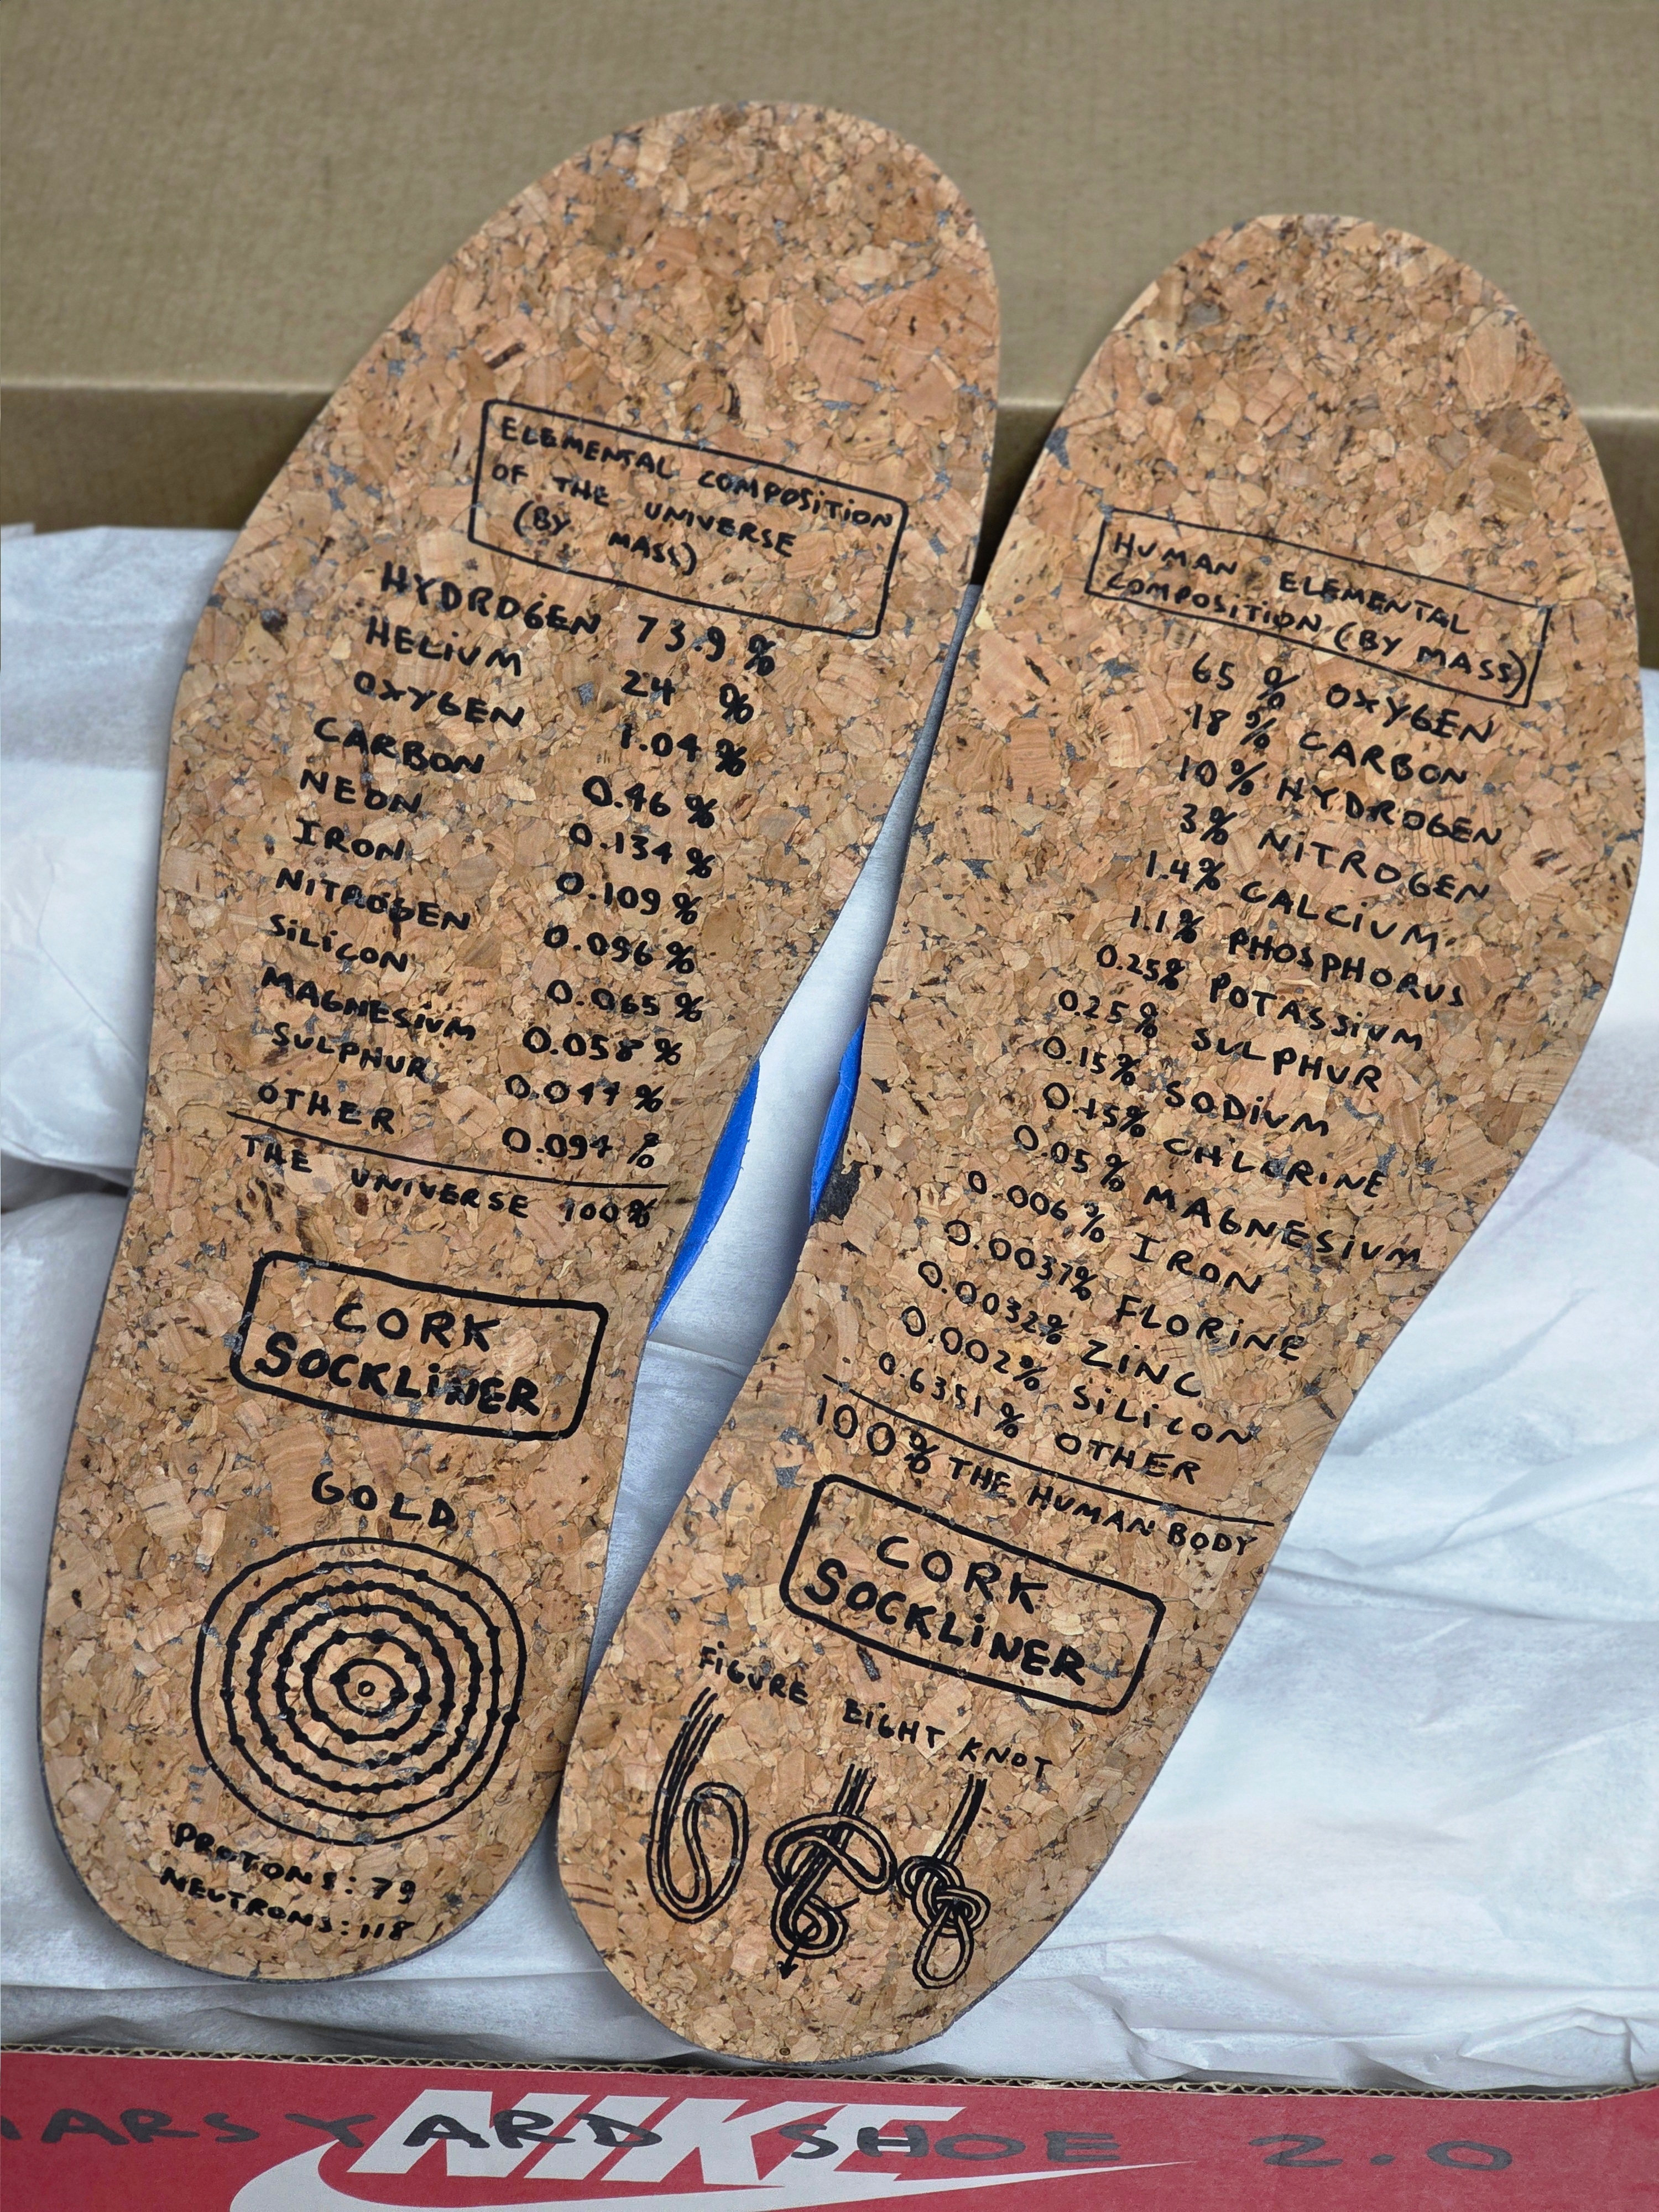 ELEMENTAL COMPOSITION
OF THE UNIVERSE
(BY MASS)
HYDROGEN 73.9 %
HELIUM 24 %
OXYGEN 1.04 %
CARBON 0.46 %
NEON 0.134 %
IRON 0.109 %
NITROGEN 0.096 %
SILICON 0.065 %
MAGNESIUM 0.058 %
SULPHUR 0.044 %
OTHER 0.094 %
THE UNIVERSE 100%
CORK
SOCKLINER
GOLD
PROTONS: 79
NEUTRONS: 118
HUMAN ELEMENTAL
COMPOSITION (BY MASS)
65 % OXYGEN
18 % CARBON
10 % HYDROGEN
3% NITROGEN
1.4% CALCIUM
1.1% PHOSPHORUS
0.25% POTASSIUM
0.25% SULPHUR
0.15% SODIUM
0.15% CHLORINE
0.05% MAGNESIUM
0.006 % IRON
0.0037% FLORINE
0.0032% ZINC
0.002% SILICON
0.6351 % OTHER
100% THE HUMAN BODY
CORK
SOCKLINER
FIGURE EIGHT KNOT
NIKE
MARS YARD SHOE 2.0